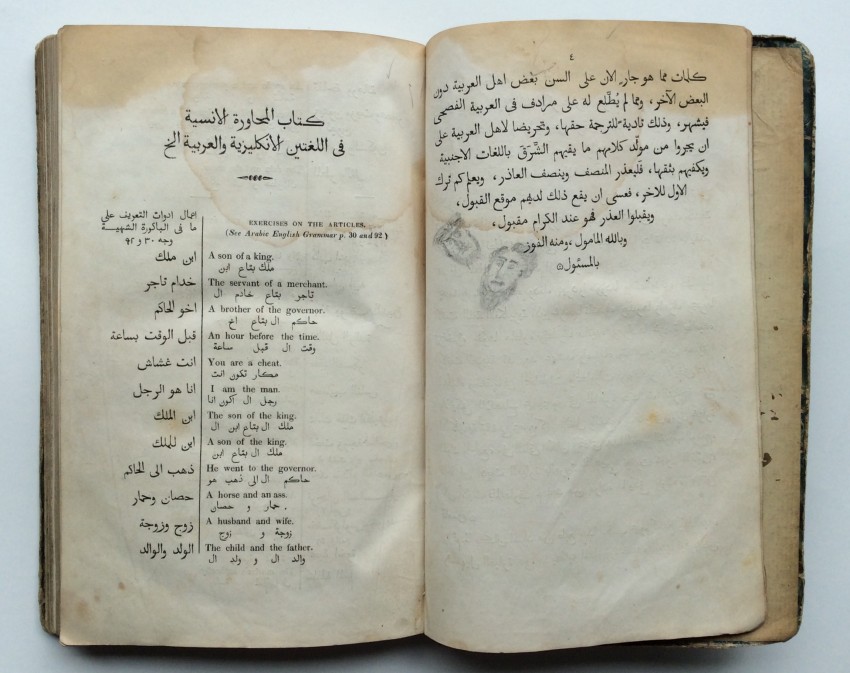 ٤
كلمات مما هو جارٍ الان على السن بعض اهل العربية دون
البعض الآخر، ومما لم يُطّلع له على مرادف فى العربية الفصحى
فيشهر، وذلك تادية للترجمة حقها، وتحريضا لاهل العربية على
ان يجروا من مولّد كلامهم ما يقيهم الشَّرَق باللغات الاجنبية
ويكفيهم بثقها، فليعذر المنصف وينصف العاذر، ويعلم كم ترك
الاول للاخر، فعسى ان يقع ذلك لديهم موقع القبول،
ويقبلوا العذر فهو عند الكرام مقبول،
وبالله المامول، ومنه الفوز
بالمسئول
كتاب المحاورة الانسية
فى اللغتين الانكليزية والعربية الخ
اعمال ادوات التعريف على
ما فى الباكورة الشهية
وجه ٣٠ و ٩٢
EXERCISES ON THE ARTICLES.
(See Arabic English Grammar p. 30 and 92)
ابن ملك A son of a king.
ملك بتاع ابن
خدام تاجر The servant of a merchant.
تاجر بتاع خادم ال
اخو الحاكم A brother of the governor.
حاكم ال بتاع اخ
قبل الوقت بساعة An hour before the time.
وقت ال قبل ساعة
انت غشاش You are a cheat.
مكار تكون انت
انا هو الرجل I am the man.
رجل ال اكون انا
ابن الملك The son of the king.
ملك ال بتاع ابن ال
ابن للملك A son of the king.
ملك ال بتاع ابن
ذهب الى الحاكم He went to the governor.
حاكم ال الى ذهب هو
حصان وحمار A horse and an ass.
حمار و حصان
زوج وزوجة A husband and wife.
زوجة و زوج
الولد والوالد The child and the father.
والد ال و ولد ال